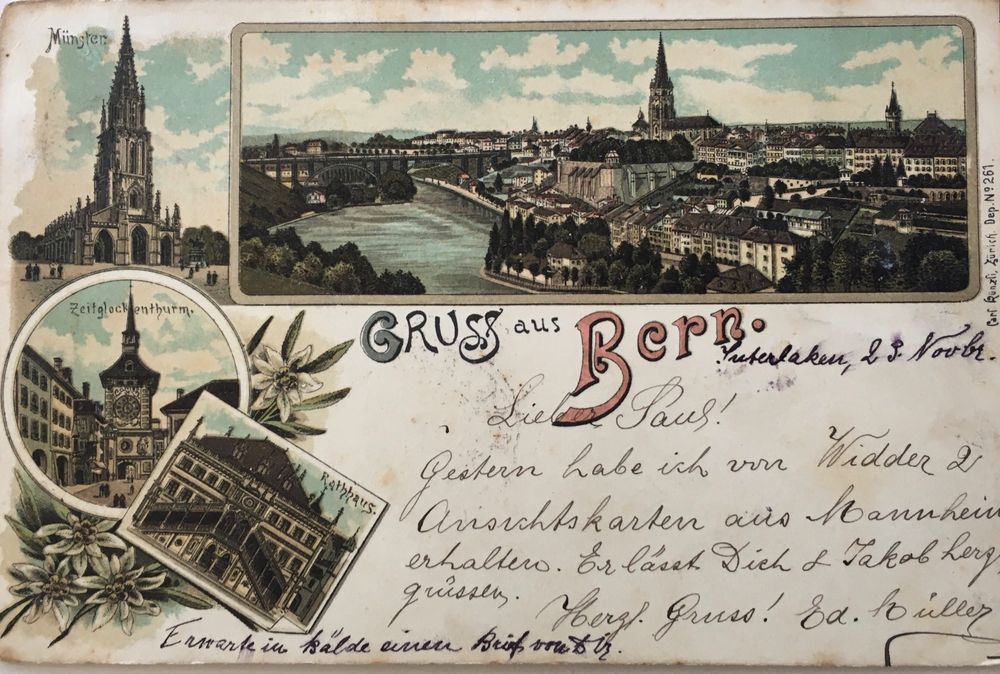 Münster
Zeitglockenthurm.
Rathhaus.
Carl Künzli, Zürich. Dep. No 261.
GRUSS aus Bern.
Interlaken, 23. Novbr.
Lieber Paul!
Gestern habe ich von Widder 2
Ansichtskarten aus Mannheim
erhalten. Er lässt Dich & Jakob herz
grüssen.
Herzl. Gruss! Ed. Müller
Erwarte in bälde einen Brief von